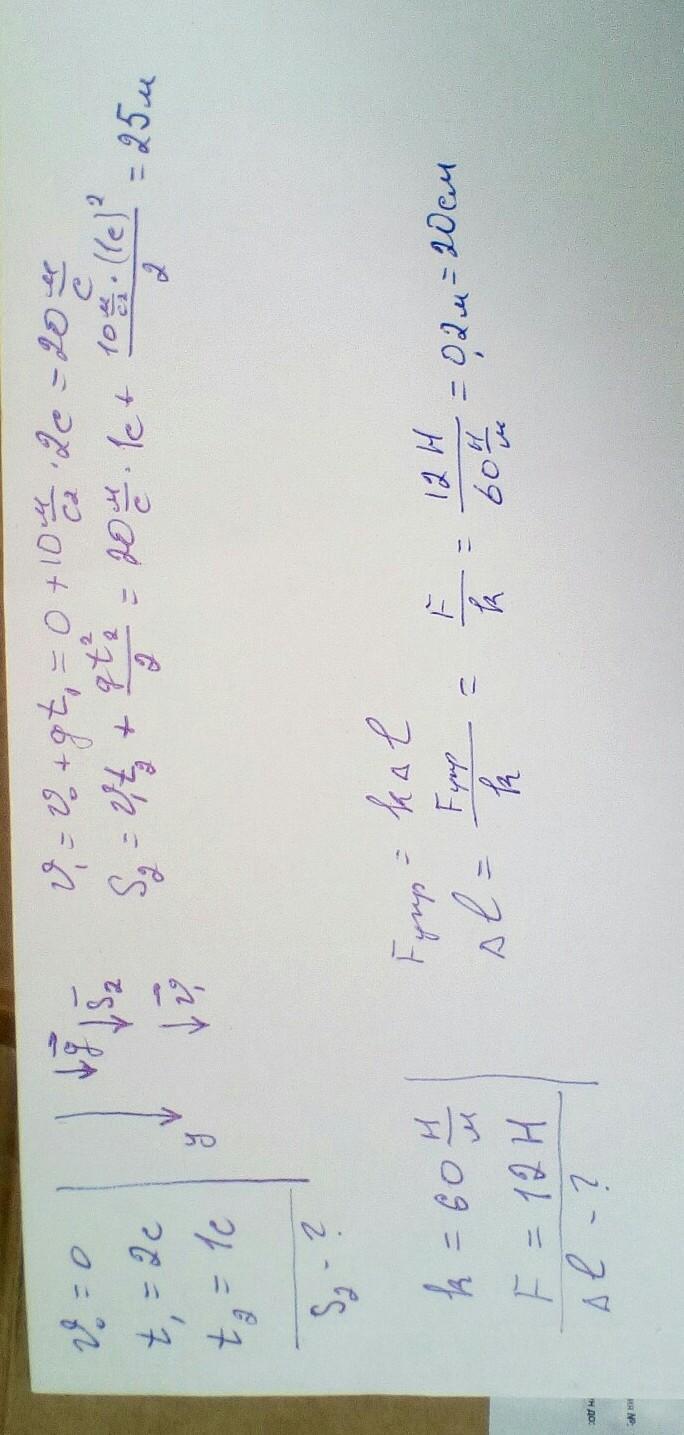 v₀ = 0
t₁ = 2c
t₂ = 1c
S₂ - ?
y
g⃗
S⃗₂
v⃗₁
v₁ = v₀ + gt₁ = 0 + 10 м/с² · 2с = 20 м/с
S₂ = v₁t₂ + gt₂²/2 = 20 м/с · 1с + 10 м/с² · (1с)²/2 = 25 м
k = 60 Н/м
F = 12 Н
Δl - ?
Fупр = kΔl
Δl = Fупр/k = F/k = 12 Н/60 Н/м = 0,2 м = 20 см